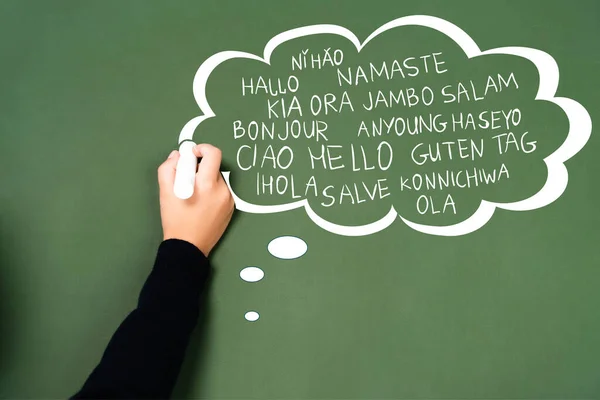 NǏ HǍO
HALLO NAMASTE
KIA ORA JAMBO SALAM
BONJOUR ANYOUNG HASEYO
CIAO HELLO GUTEN TAG
IHOLA SALVE KONNICHIWA
OLA